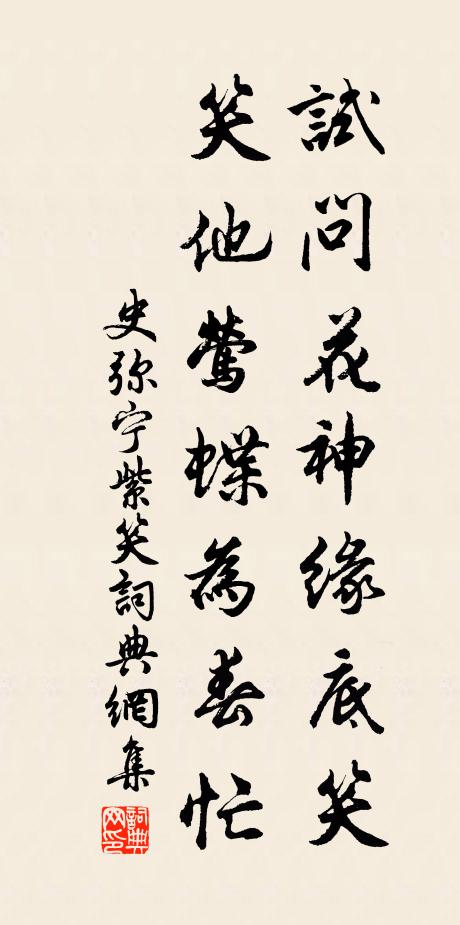 試問花神緣底笑
笑他鶯蝶為春忙
史弥宁紫笑詞典網集
詞典
网印